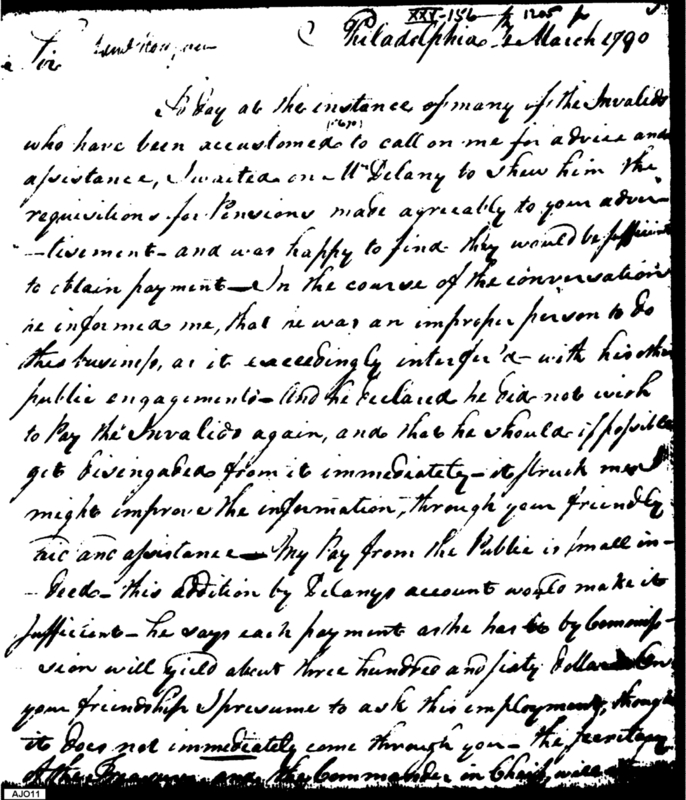 XXX-156 1205
Philadelphia 2 March 1790
Sir
To Day at the instance of many of the Invalids
who have been accustomed to call on me for advice and
assistance, I waited on Mr Delany to shew him the
requisitions for Pensions made agreeably to your adver-
-tisement - and was happy to find they would be sufficient
to obtain payment - In the course of the conversation
he informed me, that he was an improper person to do
this business, as it exceedingly interfer'd with his other
public engagements - And he declared he did not wish
to Pay the Invalids again, and that he should if possible
get disingaded from it immediately - it struck me I
might improve the information, through your friendly
and assistance - My Pay from the Public is small in-
-deed - this addition by Delanys account would make it
sufficient - he says each payment as he has it by Commis-
-sion will yield about three hundred and sixty Dollars
your friendship I presume to ask this employment, though
it does not immediately come through you - the Secretary
of the Treasury and the Commander in Chief, will
AJO11